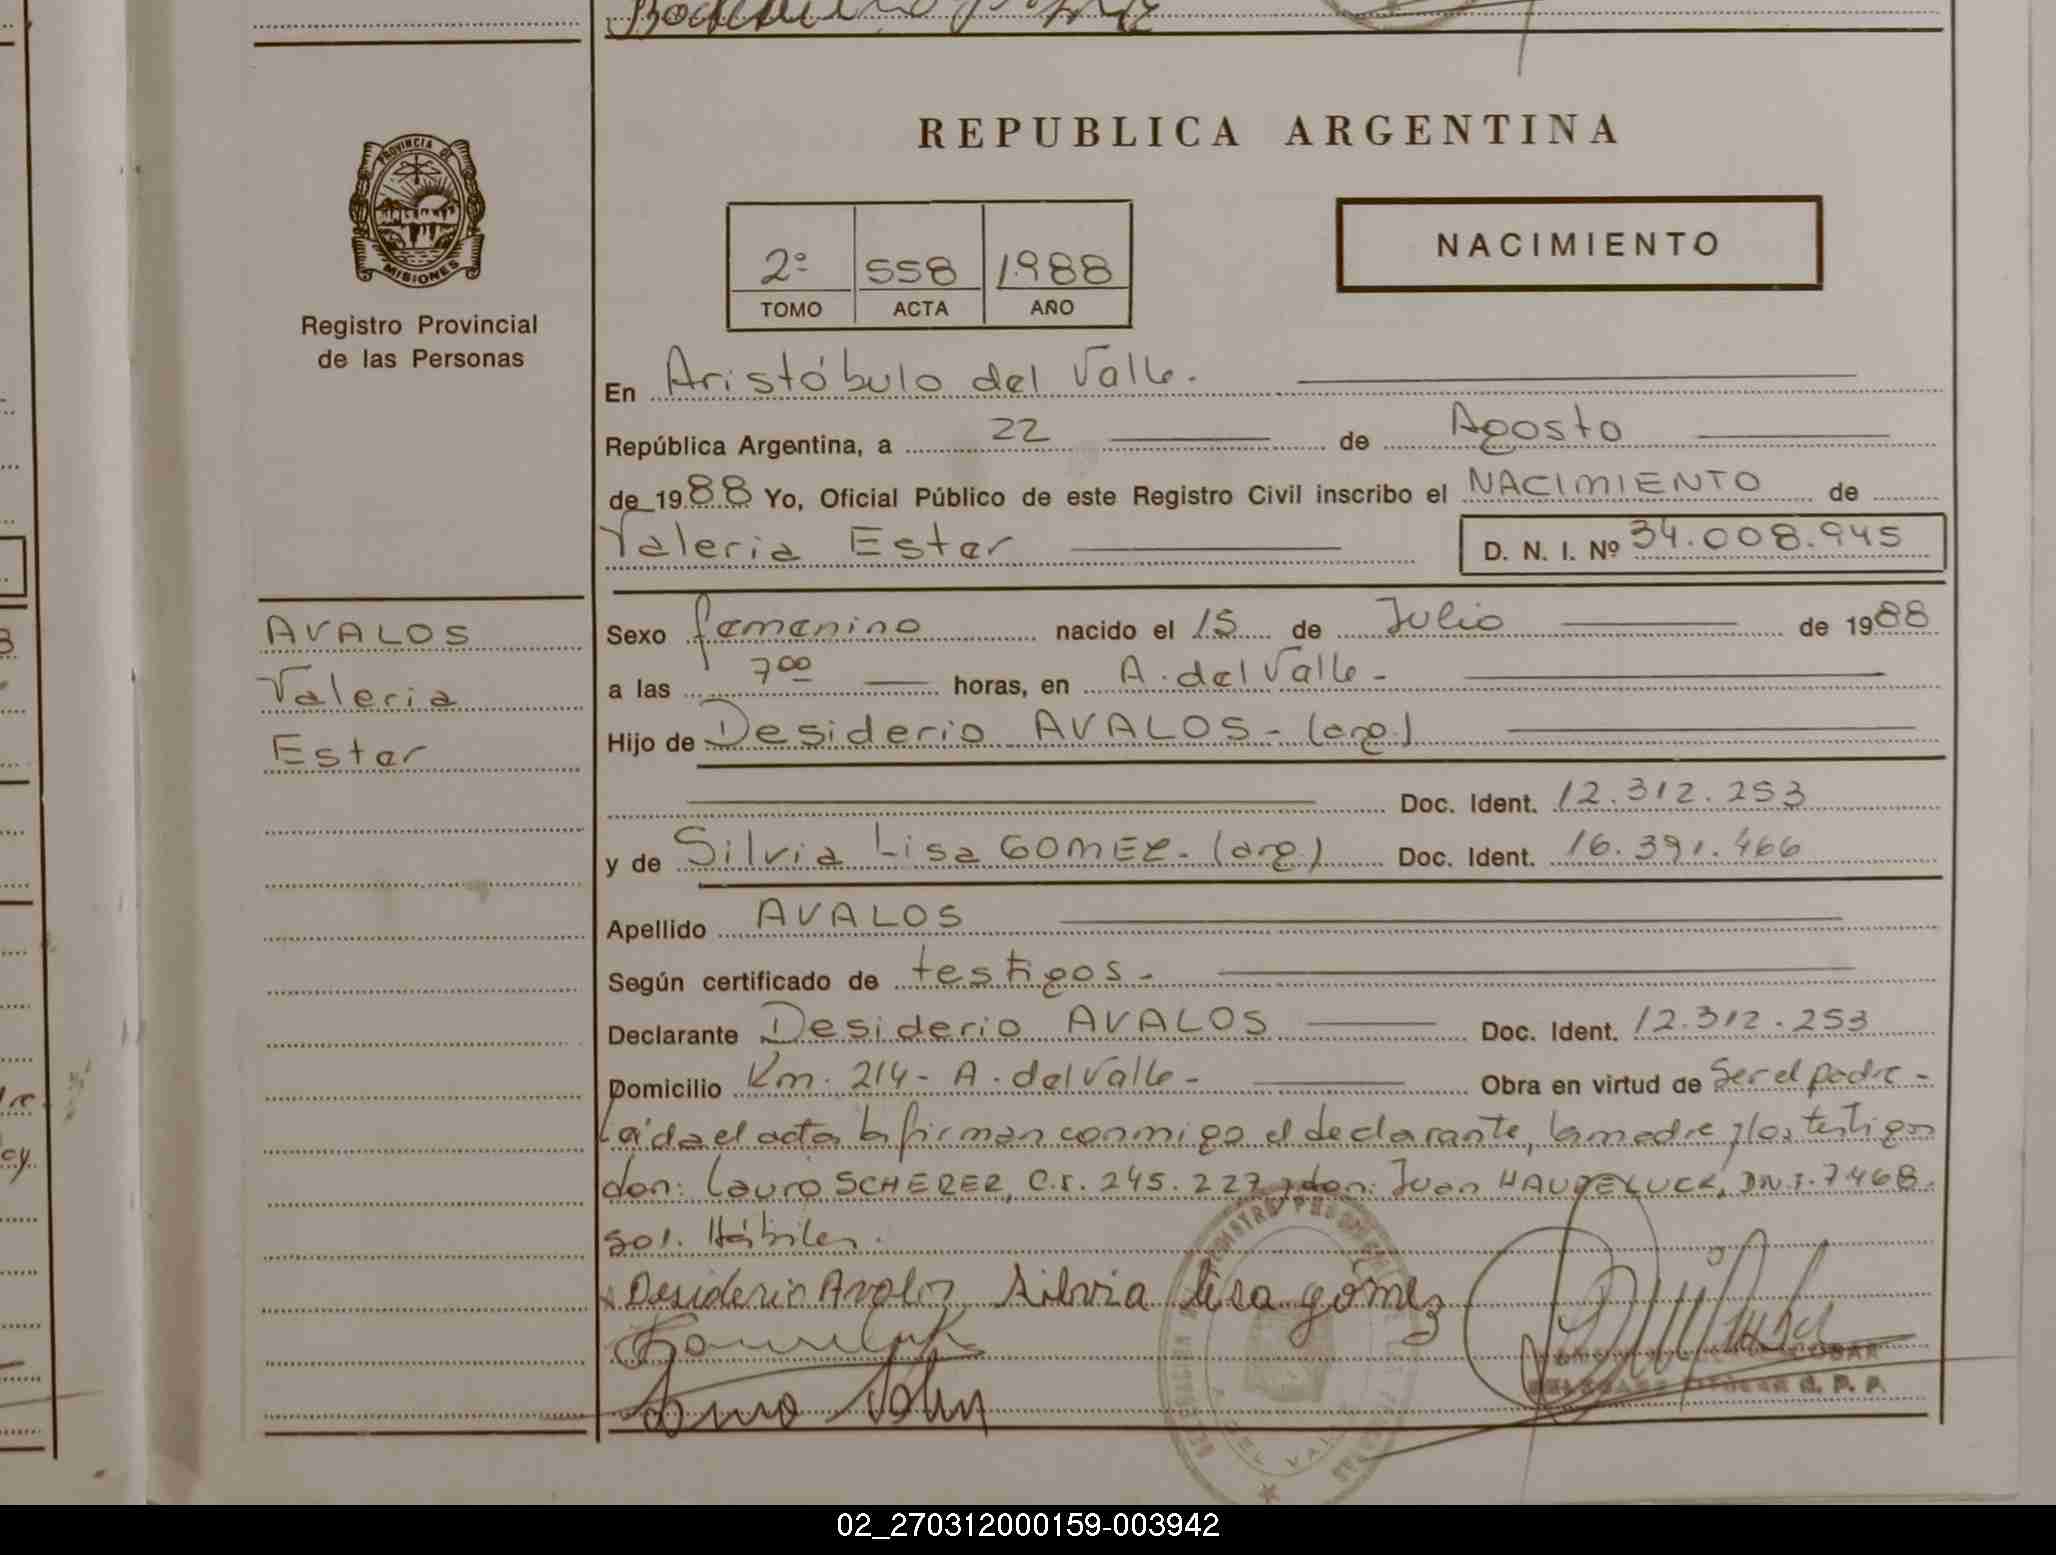 REPUBLICA ARGENTINA
PROVINCIA DE
MISIONES
Registro Provincial
de las Personas
2º 558 1988
TOMO ACTA AÑO
NACIMIENTO
En Aristóbulo del Valle.
República Argentina, a 22 de Agosto
de 1988 Yo, Oficial Público de este Registro Civil inscribo el NACIMIENTO de
Valeria Ester D. N. I. Nº 34.008.945
AVALOS
Valeria
Ester
Sexo femenino nacido el 15 de Julio de 1988
a las 7 00 horas, en A. del Valle -
Hijo de Desiderio AVALOS - (arg.)
Doc. Ident. 12.312.253
y de Silvia Lisa GOMEZ - (arg) Doc. Ident. 16.391.466
Apellido AVALOS
Según certificado de testigos -
Declarante Desiderio AVALOS Doc. Ident. 12.312.253
Domicilio Km. 214 - A. del Valle - Obra en virtud de Ser el padre -
Leída el acta la firman conmigo el declarante, la madre y los testigos
don: Lauro SCHERER, C.I. 245.227 y don: Juan DN.I. 7.468.
901. Hábiles.
Desiderio Avalos Silvia Lisa gómez
02_270312000159-003942